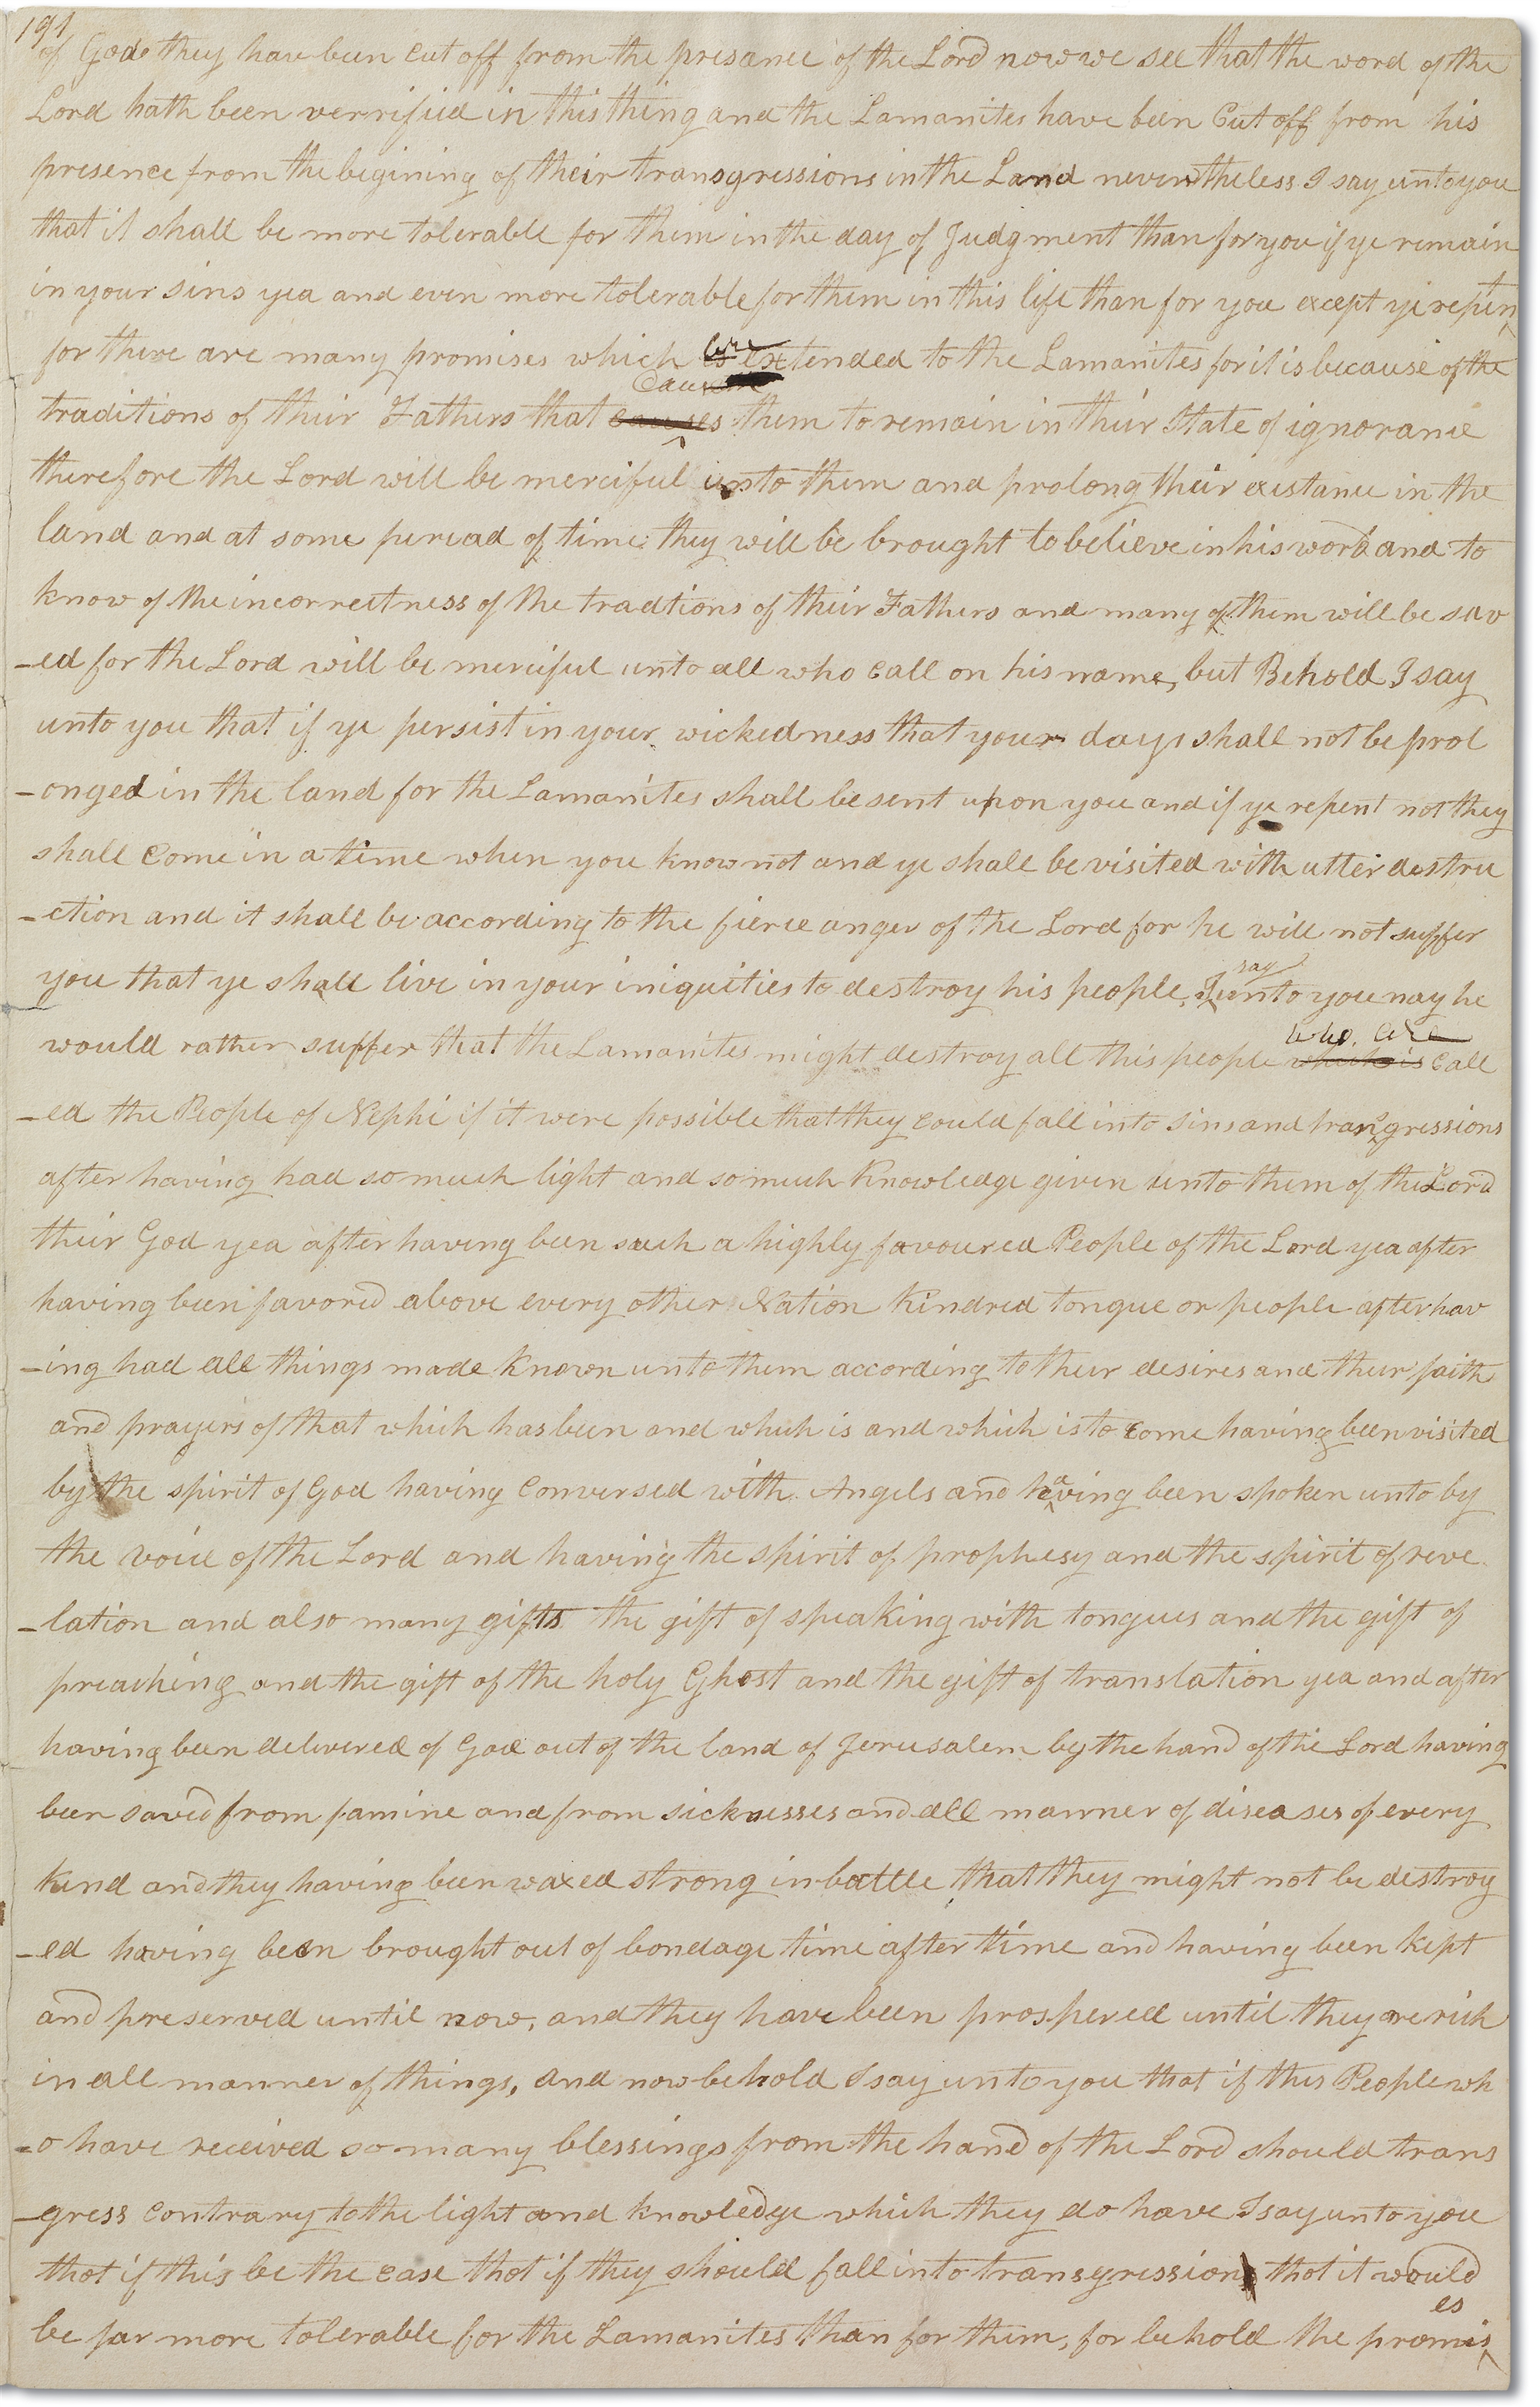 191
of God they have been cut off from the presance of the Lord now we see that the word of the
Lord hath been verrified in this thing and the Lamanites have been Cut off from his
presence from the begining of their transgressions in the Land nevertheless I say unto you
that it shall be more tolerable for them in the day of Judgment than for you if ye remain
in your sins yea and even more tolerable for them in this life than for you except ye repen
for there are many promises which is are extended to the Lamanites for it is because of the
traditions of their Fathers that causes Caused them to remain in their State of ignorance
therefore the Lord will be merciful unto them and prolong their existance in the
land and at some peread of time they will be brought to believe in his word and to
know of the incorrectness of the tradtions of their Fathers and many of them will be sav
-ed for the Lord will be merciful unto all who call on his name, but Behold I say
unto you that if ye persist in your wickedness that your days shall not be prol
-onged in the land for the Lamanites shall be sent upon you and if ye repent not they
shall come in a time when you know not and ye shall be visited with utter destru
-ction and it shall be according to the fierce anger of the Lord for he will not suffer
you that ye shall live in your iniquities to destroy his people, I say unto you nay he
would rather suffer that the Lamanites might destroy all this people which is who are call
-ed the People of Nephi if it were possible that they could fall into sins and transgressions
after having had so much light and so much Knowledge given unto them of the Lord
their God yea after having been such a highly favoured People of the Lord yea after
having been favored above every other Nation Kindred tongue or people after hav
-ing had all things made known unto them according to their desires and their faith
and prayers of that which has been and which is and which is to come having been visited
by the spirit of God having conversed with Angels and having been spoken unto by
the voice of the Lord and having the spirit of prophesy and the spirit of reve
-lation and also many gifts the gift of speaking with tongues and the gift of
preaching and the gift of the holy Ghost and the gift of translation yea and after
having been delivered of God out of the land of Jerusalem by the hand of the Lord having
been saved from famine and from sicknesses and all manner of diseases of every
kind and they having been waxed strong in battle that they might not be destroy
-ed having been brought out of bondage time after time and having been kept
and preserved until now, and they have been prospered until they are rich
in all manner of things, and now behold I say unto you that if this People wh
-o have received so many blessings from the hand of the Lord should trans
-gress contrary to the light and knowledge which they do have I say unto you
that if this be the case that if they should fall into transgression that it would
be far more tolerable for the Lamanites than for them, for behold the promises